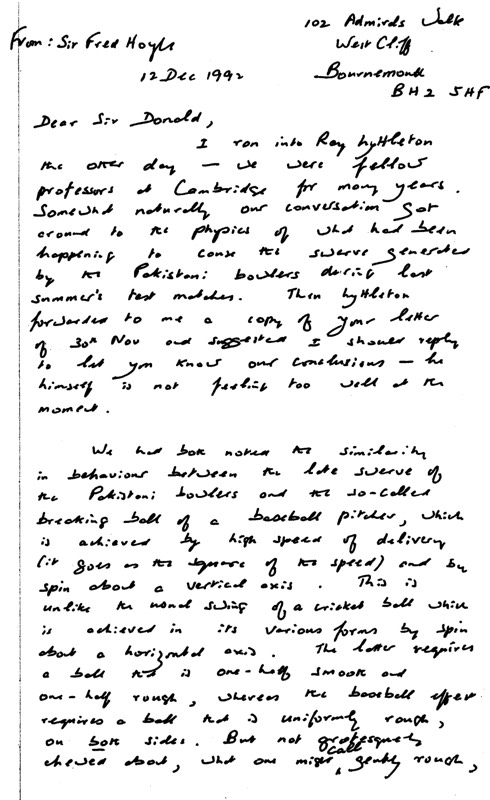 102 Admirals Walk
From: Sir Fred Hoyle
West Cliff
12 Dec 1992
Bournemouth
BH2 5HF
Dear Sir Donald,
I ran into Ray Lyttleton
the other day — we were fellow
professors at Cambridge for many years.
Somewhat naturally our conversation got
around to the physics of what had been
happening to cause the swerve generated
by the Pakistani bowlers during last
summer's test matches. Then Lyttleton
forwarded to me a copy of your letter
of 30th Nov and suggested I should reply
to let you know our conclusions — he
himself is not feeling too well at the
moment.
We had both noted the similarity
in behaviour between the late swerve of
the Pakistani bowlers and the so-called
breaking ball of a baseball pitcher, which
is achieved by high speed of delivery
(it goes as the square of the speed) and by
spin about a vertical axis. This is
unlike the usual swing of a cricket ball which
is achieved in its various forms by spin
about a horizontal axis. The latter requires
a ball that is one-half smooth and
one-half rough, whereas the baseball effect
requires a ball that is uniformly rough,
on both sides. But not grotesquely
chewed about, what one might call gently rough,